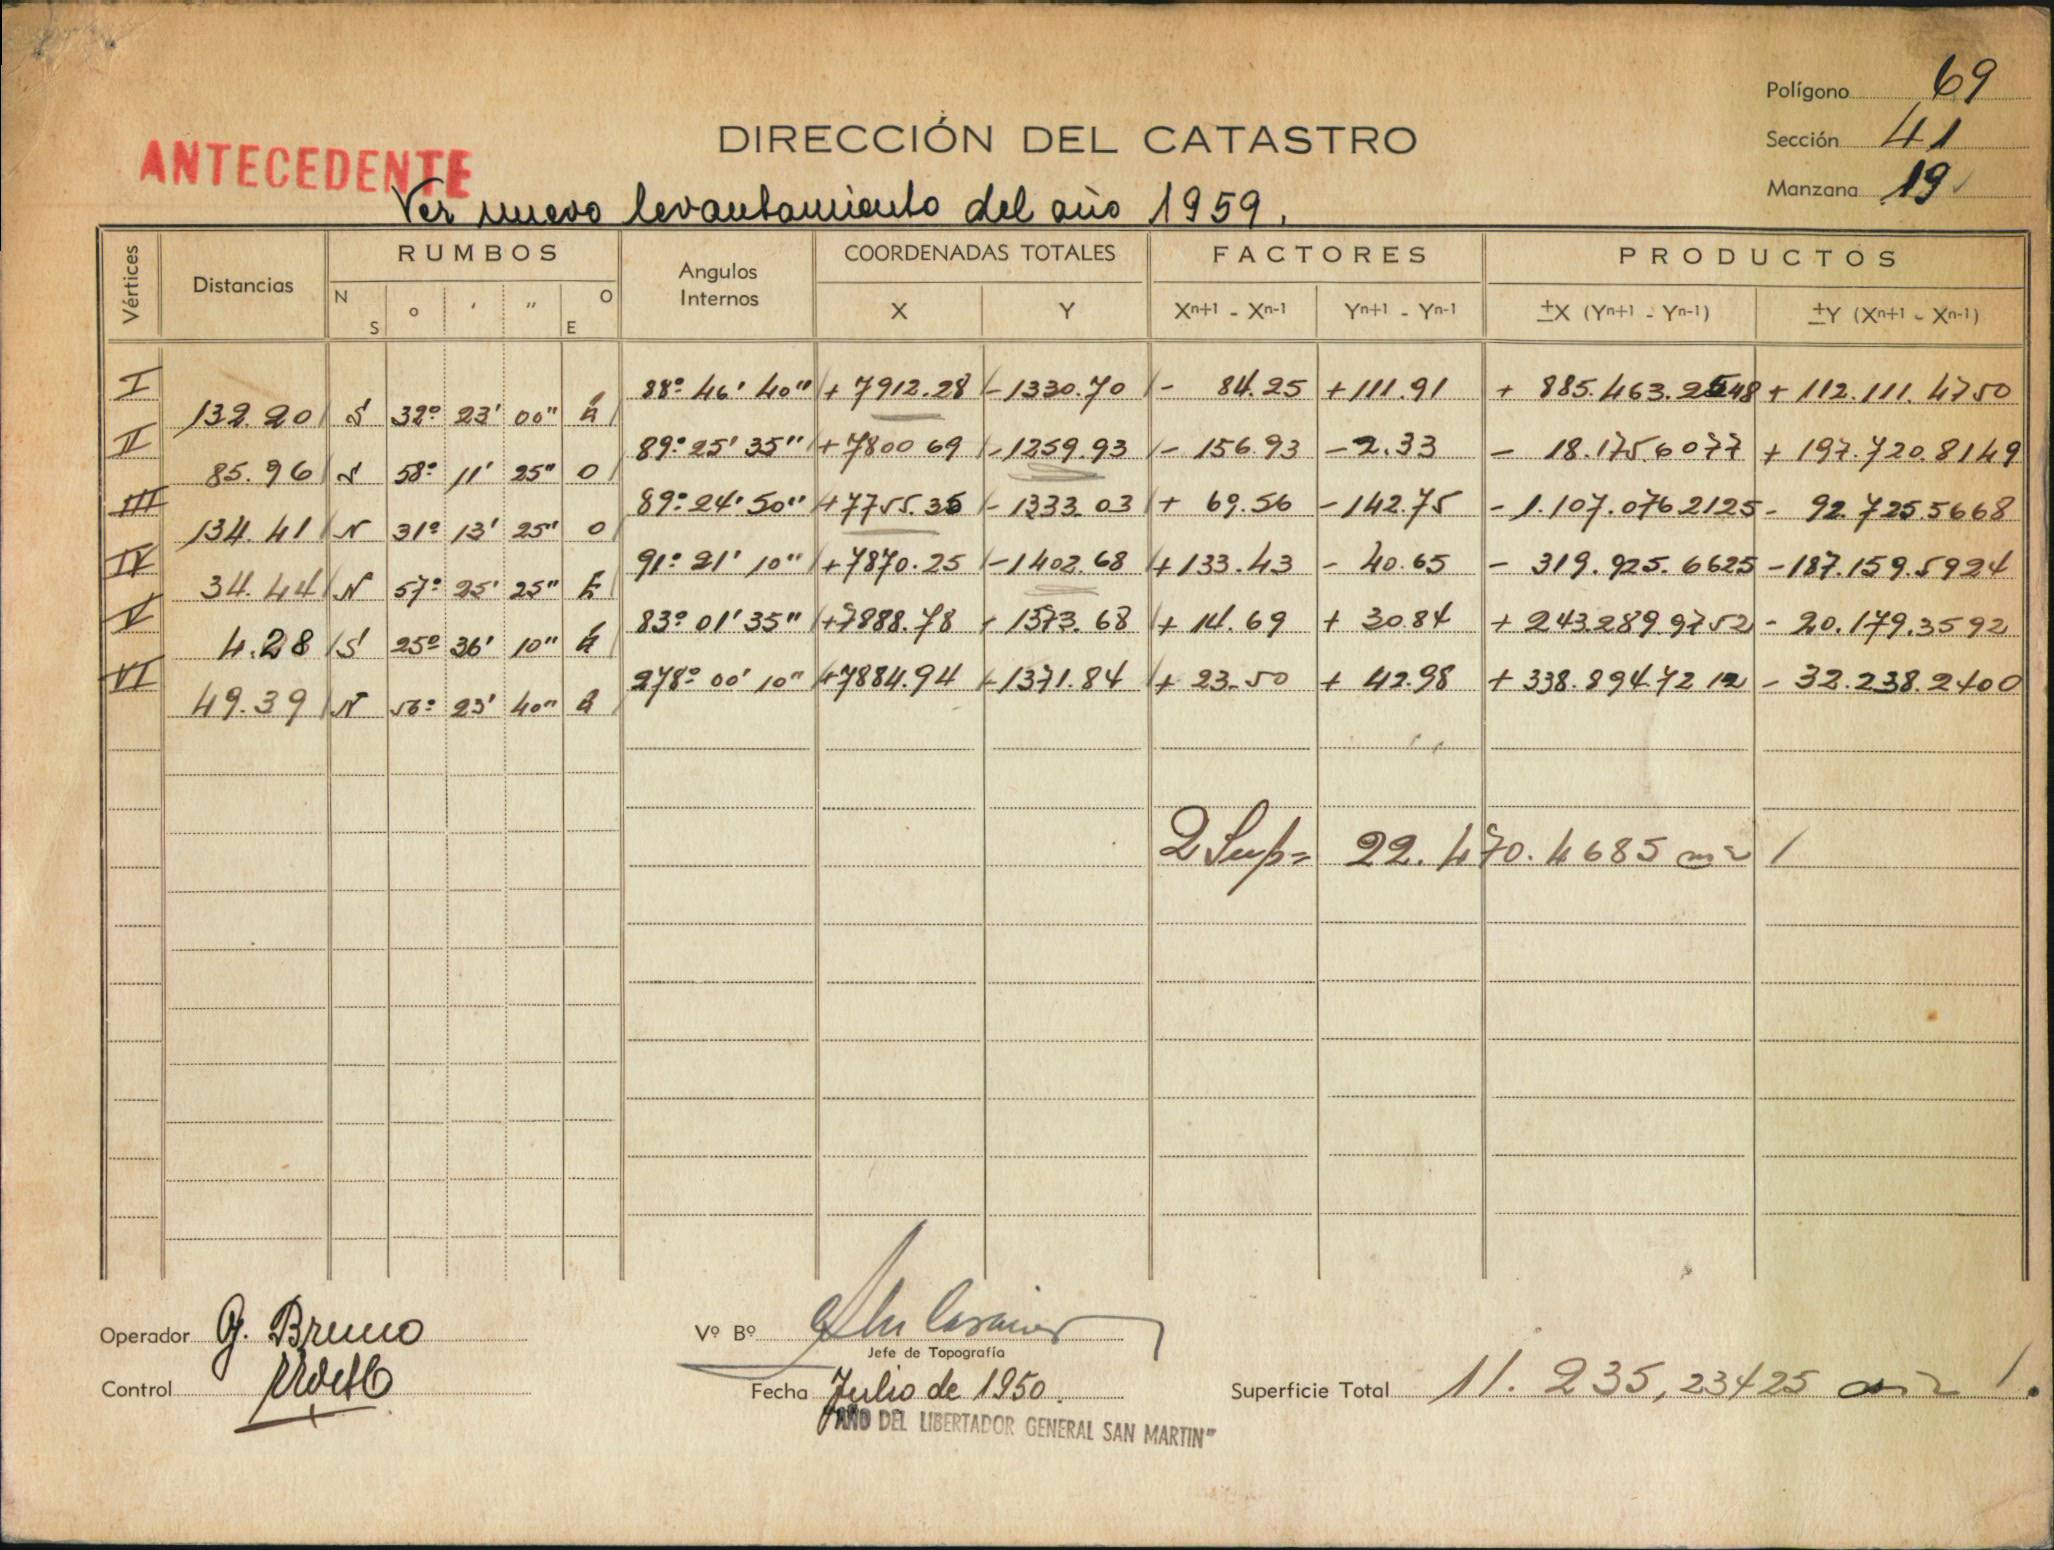 Polígono 69
DIRECCIÓN DEL CATASTRO
Sección 41
ANTECEDENTE
Manzana 19
Ver nuevo levantamiento del año 1959.
Vértices Distancias RUMBOS Angulos Internos COORDENADAS TOTALES FACTORES PRODUCTOS
N S ° ' " O E X Y Xⁿ⁺¹ - Xⁿ⁻¹ Yⁿ⁺¹ - Yⁿ⁻¹ ±X (Yⁿ⁺¹ - Yⁿ⁻¹) ±Y (Xⁿ⁺¹ - Xⁿ⁻¹)
I 88° 46' 40" + 7912.28 - 1330.70 - 84.25 + 111.91 + 885.463.2548 + 112.111.4750
132.20 S 32° 23' 00" E
II 89° 25' 35" + 7800 69 - 1259.93 - 156.93 - 2.33 - 18.175.6077 + 197.720.8149
85.96 S 58° 11' 25" O
III 89° 24' 50" + 7755.35 - 1333.03 + 69.56 - 142.75 - 1.107.076.2125 - 92.725.5668
134.41 N 31° 13' 25" O
IV 91° 21' 10" + 7870.25 - 1402.68 + 133.43 - 40.65 - 319.925.6625 - 187.159.5924
34.44 N 57° 25' 25" E
V 83° 01' 35" + 7888.78 - 1373.68 + 14.69 + 30.84 + 243.289.9752 - 20.179.3592
4.28 S 25° 36' 10" E
VI 278° 00' 10" + 7884.94 - 1371.84 + 23.50 + 42.98 + 338.894.7212 - 32.238.2400
49.39 N 56° 23' 40" E
2 Sup = 22.470.4685 m2
Operador G. Bruno
Vº Bº
Jefe de Topografía
Control
Fecha Julio de 1950.
Superficie Total 11.235,23425 m2
"AÑO DEL LIBERTADOR GENERAL SAN MARTIN"